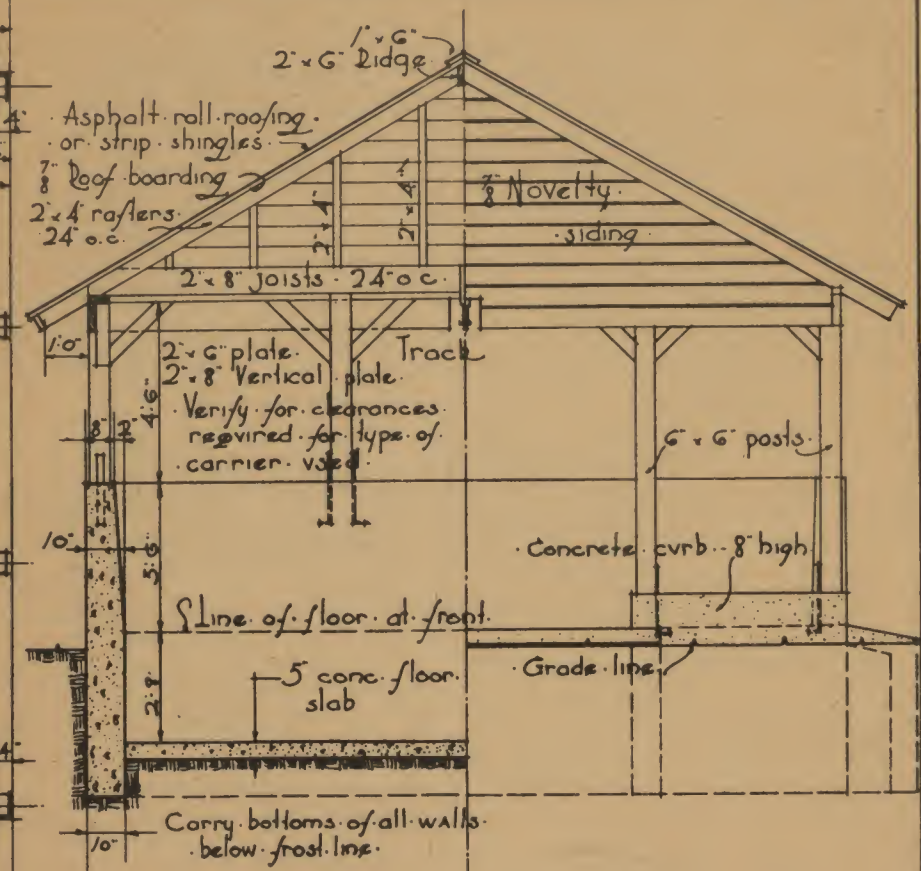 1" x 6"
2" x 6" Ridge
Asphalt·roll·roofing·
·or·strip·shingles
7/8" Roof·boarding
2" x 4" rafters·
24" o.c.
2" x 4"
2" x 4"
7/8" Novelty·
·siding·
2" x 8" joists·24" o.c.
1'0"
Track
2" x 6" plate·
2" x 8" Vertical·plate·
·Verify·for·clearances·
required·for·type·of·
·carrier·used·
4'6"
8"
2"
6" x 6" posts
10"
5'6"
·Concrete·curb··8" high
Line·of·floor·at·front·
·Grade·line
2'8"
5" conc·floor·
slab
4"
4"
10"
Carry·bottoms·of·all·walls·
·below·frost·line·